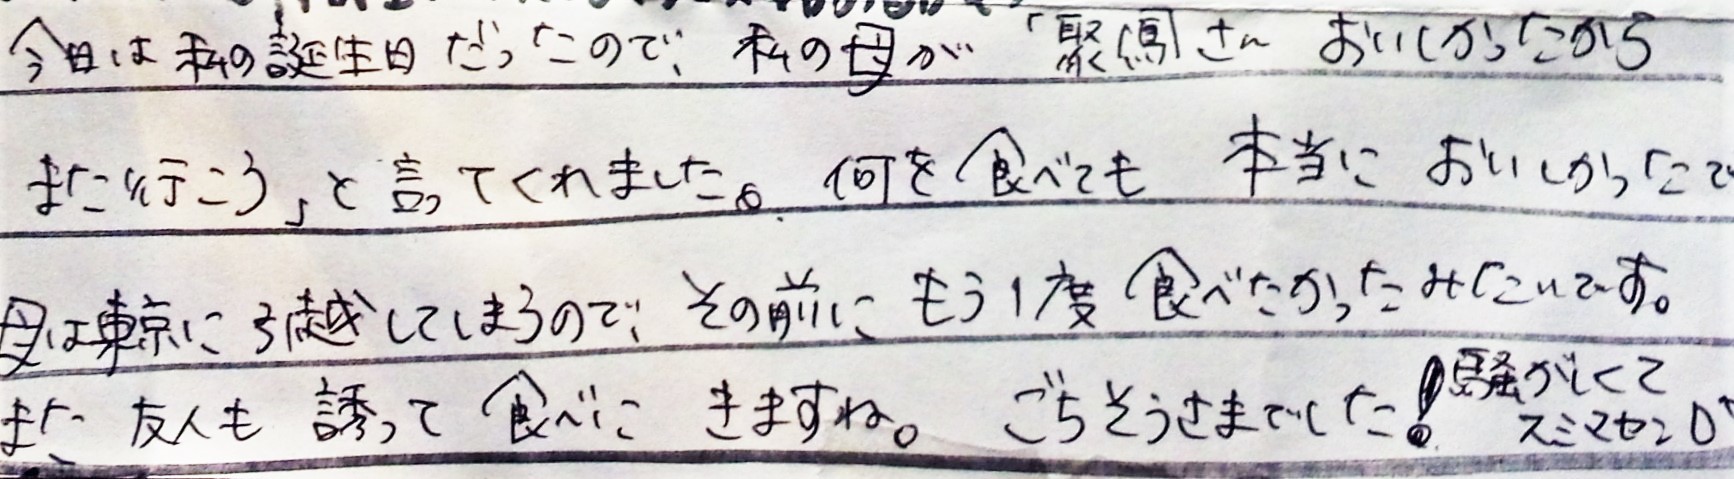 今日は私の誕生日だったので、私の母が「聚鳳さんおいしかったから
また行こう」と言ってくれました。何を食べても本当においしかったで
母は東京に引越してしまうので、その前にもう1度食べたかったみたいです。
また友人も誘って食べにきますね。ごちそうさまでした！騒がしくて
スミマセン